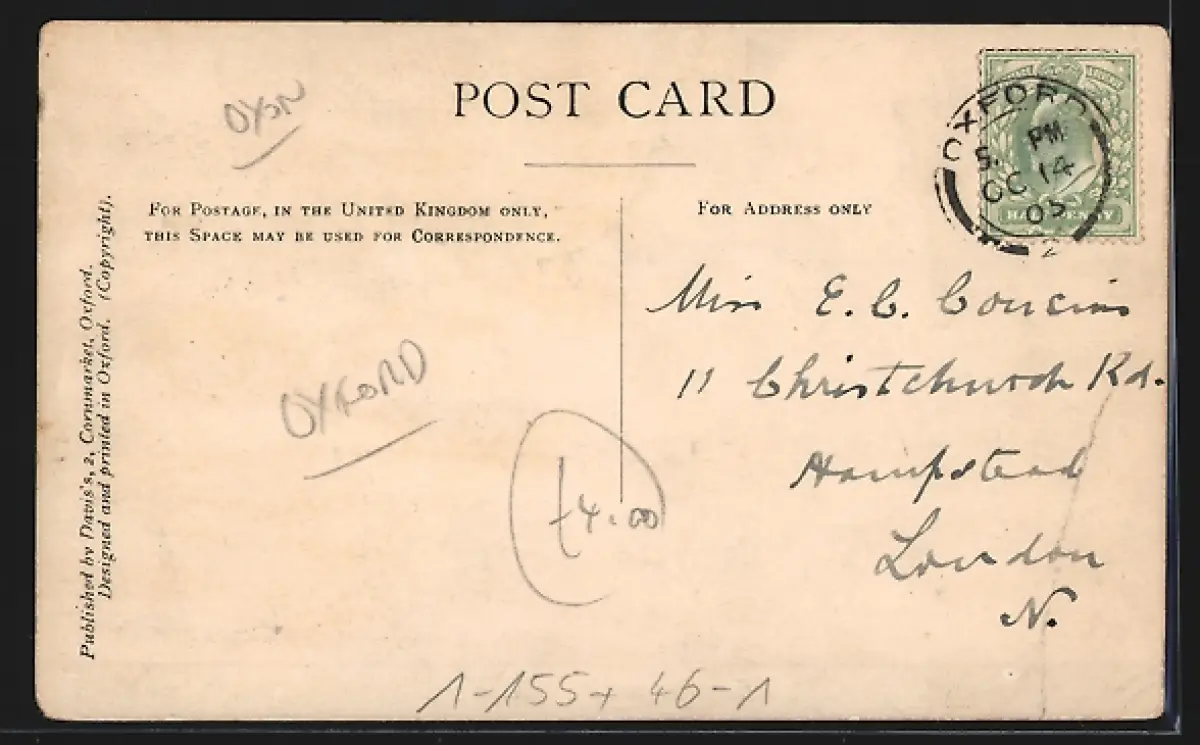 POST CARD
OXON
FOR POSTAGE, IN THE UNITED KINGDOM ONLY,
THIS SPACE MAY BE USED FOR CORRESPONDENCE.
FOR ADDRESS ONLY
OXFORD
5. PM
OC 14
03
2
HALFPENNY
Miss E. C. Couzins
11 Christchurch Rd.
Hampstead
London
N.
OXFORD
£4.00
Published by Davis's, 2, Cornmarket, Oxford.
Designed and printed in Oxford. (Copyright).
1-155+ 46-1